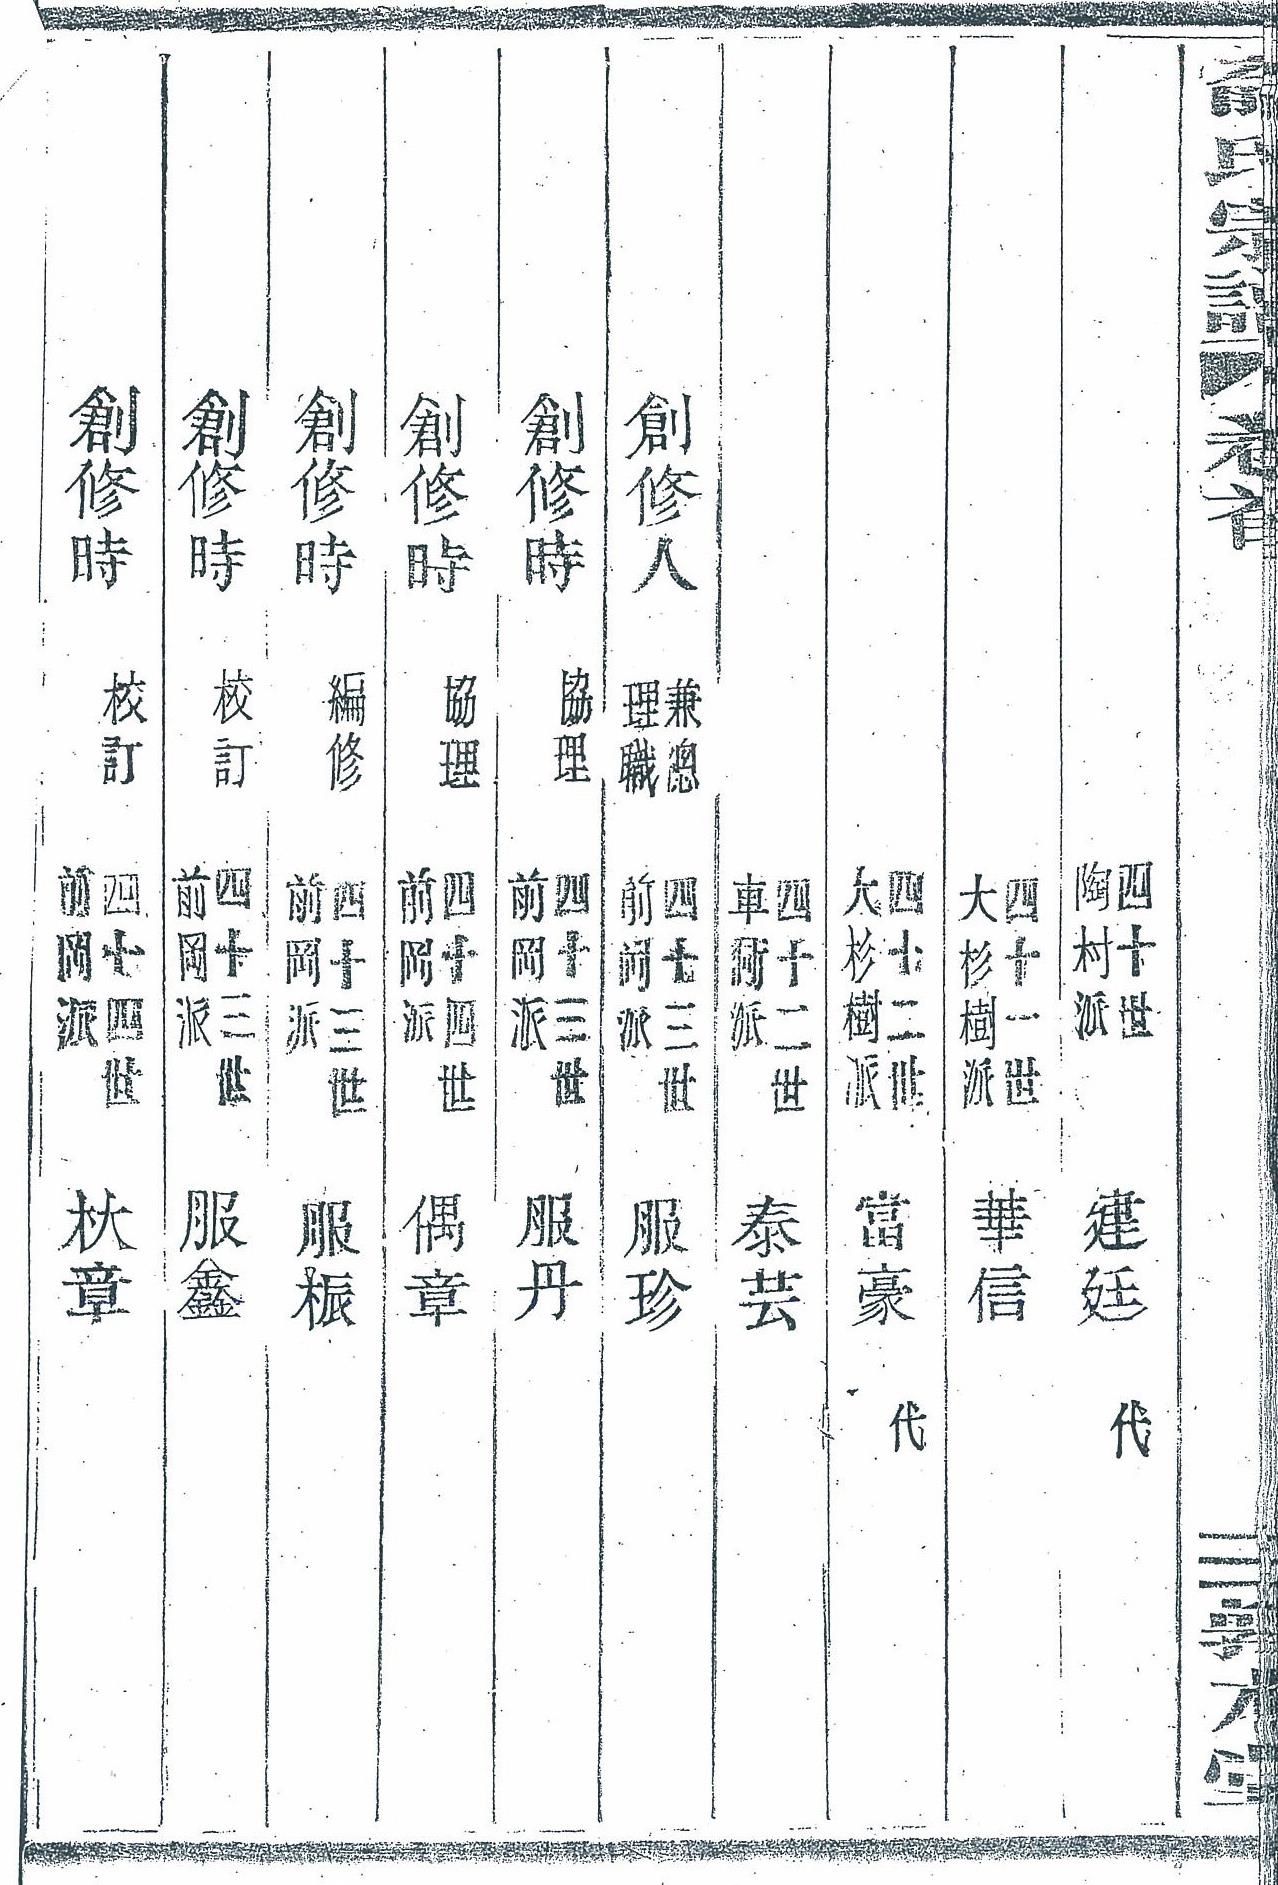 氏宗譜 卷首
四十世 陶村派 建廷 代
四十一世 大杉樹派 華信
四十二世 大杉樹派 當豪 代
四十二世 車衖派 泰芸
創修人 兼總理職 四十三世 前岡派 服珍
創修時 協理 四十三世 前岡派 服丹
創修時 協理 四十四世 前岡派 偶章
創修時 編修 四十三世 前岡派 服桭
創修時 校訂 四十三世 前岡派 服鑫
創修時 校訂 四十四世 前岡派 杕章